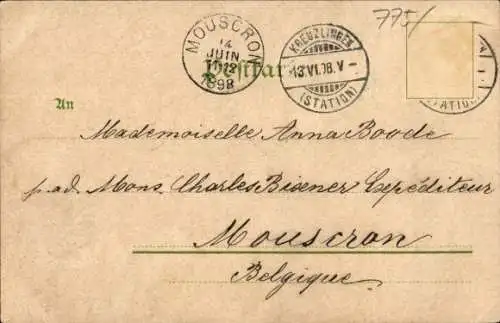 775/
MOUSCRON
14
JUIN
11-12
1898
Postkarte
KREUZLINGEN
13.VI.98.V-
(STATION)
(STATION)
An
Mademoiselle Anna Boode
p. ad. Mons. Charles Bisener Expéditeur
Mouscron
Belgique